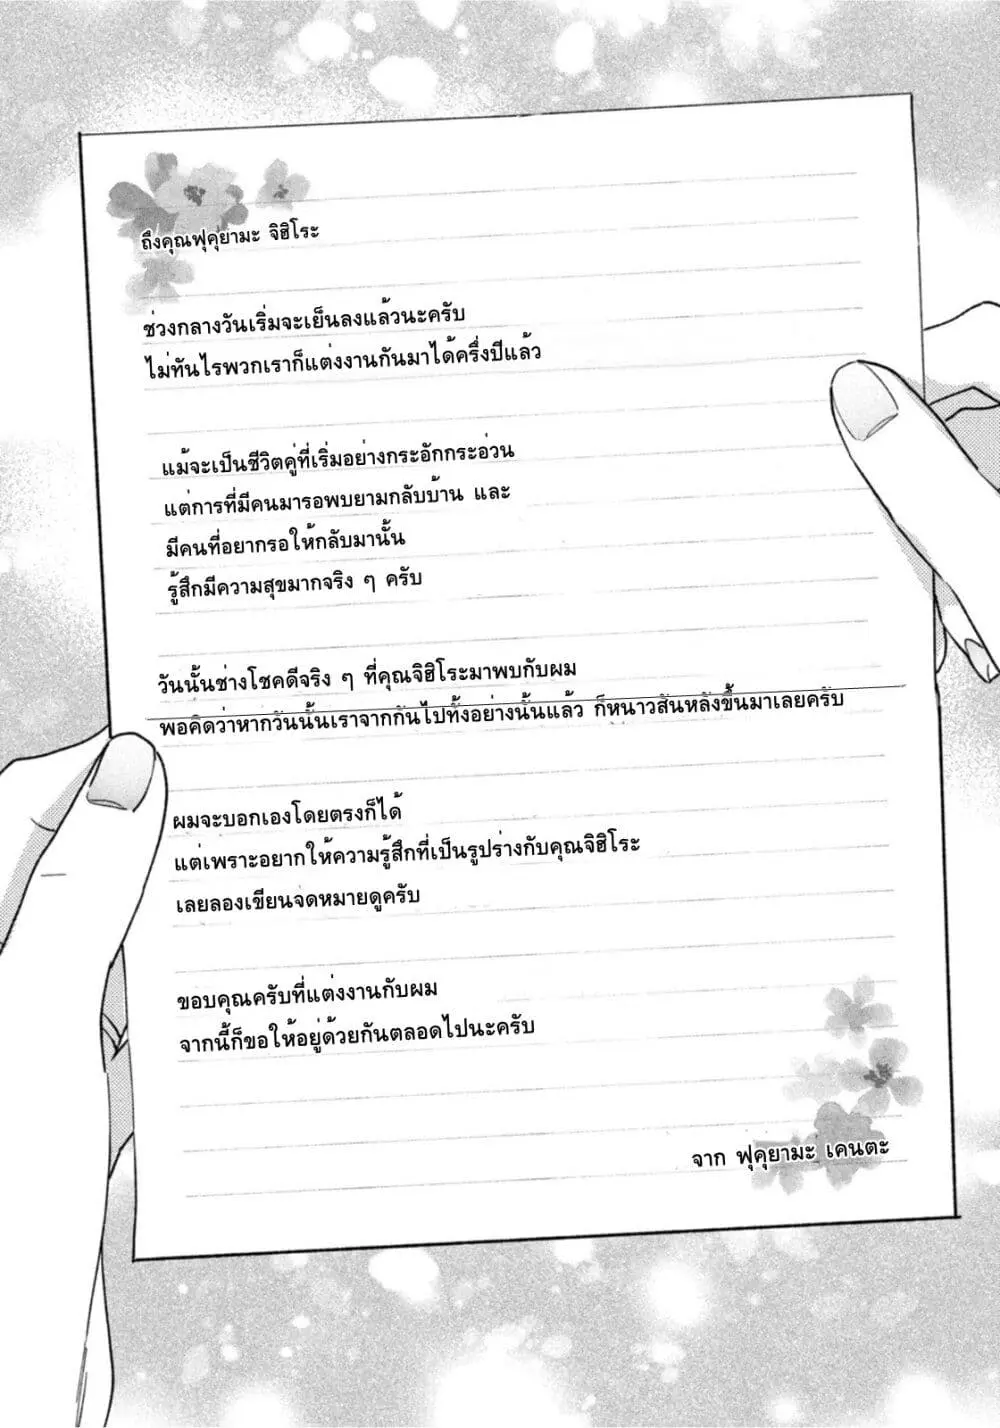 ถึงคุณฟุคุยามะ จิฮิโระ
ช่วงกลางวันเริ่มจะเย็นลงแล้วนะครับ
ไม่ทันไรพวกเราก็แต่งงานกันมาได้ครึ่งปีแล้ว
แม้จะเป็นชีวิตคู่ที่เริ่มอย่างกระอักกระอ่วน
แต่การที่มีคนมารอพบยามกลับบ้าน และ
มีคนที่อยากรอให้กลับมานั้น
รู้สึกมีความสุขมากจริง ๆ ครับ
วันนั้นช่างโชคดีจริง ๆ ที่คุณจิฮิโระมาพบกับผม
พอคิดว่าหากวันนั้นเราจากกันไปทั้งอย่างนั้นแล้ว ก็หนาวสันหลังขึ้นมาเลยครับ
ผมจะบอกเองโดยตรงก็ได้
แต่เพราะอยากให้ความรู้สึกที่เป็นรูปร่างกับคุณจิฮิโระ
เลยลองเขียนจดหมายดูครับ
ขอบคุณครับที่แต่งงานกับผม
จากนี้ก็ขอให้อยู่ด้วยกันตลอดไปนะครับ
จาก ฟุคุยามะ เคนตะ